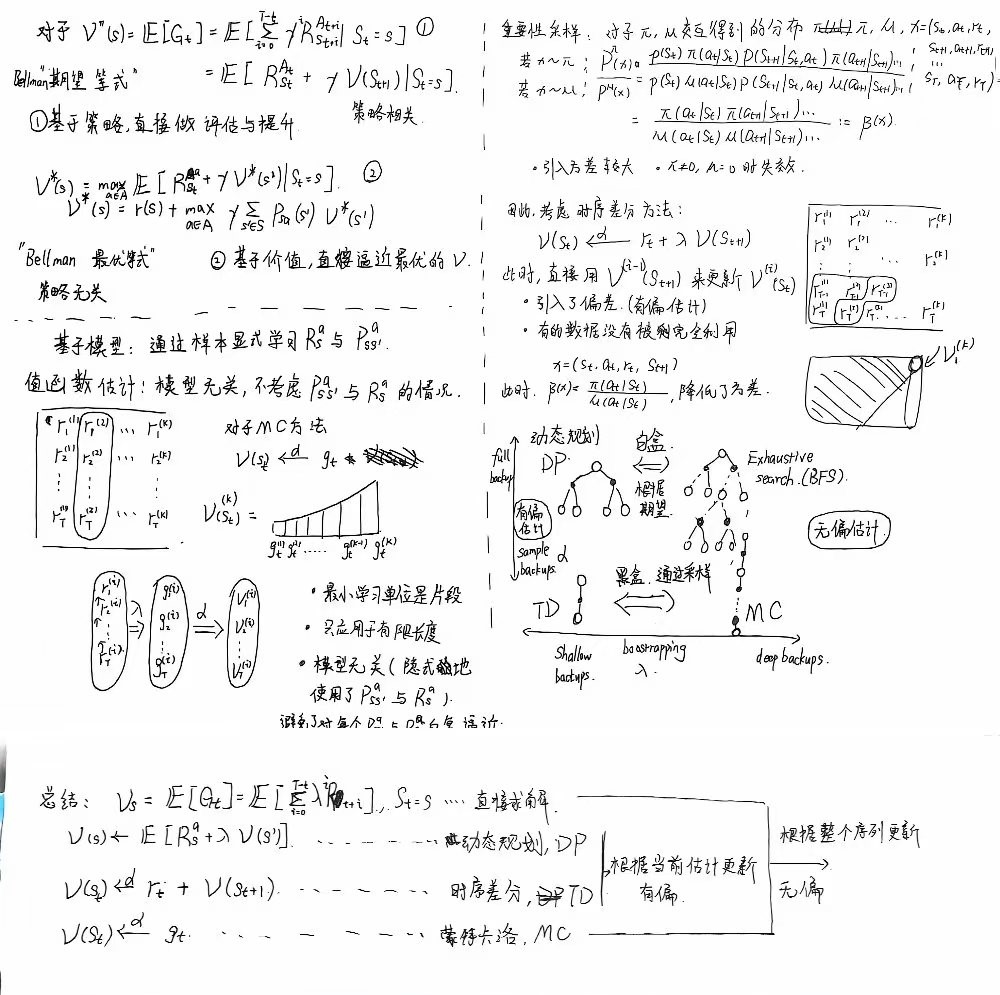 对于 V^π(s) = E[G_t] = E[Σ_{i=0}^{T-t} γ^i R_{S_{t+i}}^{A_{t+i}} | S_t = s] ①
Bellman"期望等式" = E[R_{S_t}^{A_t} + γ V(S_{t+1}) | S_t = s].
①基于策略,直接做评估与提升 策略相关.
V*(s) = max_{a∈A} E[R_{S_t}^a + γ V*(s') | S_t = s]. ②
V*(s) = r(s) + max_{a∈A} γ Σ_{s'∈S} P_{sa}(s') V*(s')
"Bellman 最优等式" ② 基于价值,直接逼近最优的 V.
策略无关
基于模型: 通过样本显式学习 R_s^a 与 P_{ss'}^a
值函数估计: 模型无关, 不考虑 P_{ss'}^a 与 R_s^a 的情况.
r_1^{(1)} r_1^{(2)} ... r_1^{(k)}
r_2^{(1)} r_2^{(2)} ... r_2^{(k)}
r_T^{(1)} r_T^{(2)} ... r_T^{(k)}
对于MC方法
V(S_t) ←^α g_t
V^{(k)}(S_t) =
g_t^{(1)} g_t^{(2)} ..... g_t^{(k-1)} g_t^{(k)}
r_1^{(i)} r_2^{(i)} ... r_T^{(i)} ⇒^λ g_1^{(i)} g_2^{(i)} ... g_T^{(i)} ⇒^α V_1^{(i)} V_2^{(i)} ... V_T^{(i)}
• 最小学习单位是片段
• 只应用于有限长度
• 模型无关 (隐式地
使用了 P_{ss'}^a 与 R_s^a).
重要性采样: 对于 π, μ 交互得到的分布 π, μ, x=(s_t, a_t, r_t,
s_{t+1}, a_{t+1}, r_{t+1}
... s_T, a_T, r_T)
若 x~π: P^π(x) = p(s_t) π(a_t|s_t) p(s_{t+1}|s_t,a_t) π(a_{t+1}|s_{t+1})...
若 x~μ: P^μ(x) p(s_t) μ(a_t|s_t) p(s_{t+1}|s_t,a_t) μ(a_{t+1}|s_{t+1})...
= π(a_t|s_t) π(a_{t+1}|s_{t+1})... / μ(a_t|s_t) μ(a_{t+1}|s_{t+1})... := β(x).
• 引入方差较大 • π≠0, μ=0 时失效.
因此, 考虑 时序差分方法:
V(S_t) ←^α r_t + λ V(S_{t+1})
此时, 直接用 V^{(i-1)}(S_{t+1}) 来更新 V^{(i)}(S_t)
• 引入了偏差. (有偏估计)
• 有的数据没有被完全利用
x=(s_t, a_t, r_t, s_{t+1})
此时. β(x) = π(a_t|s_t) / μ(a_t|s_t), 降低了方差.
r_1^{(1)} r_1^{(2)} ... r_1^{(k)}
r_2^{(1)} r_2^{(2)} ... r_2^{(k)}
r_{T-1}^{(1)} r_{T-1}^{(2)} r_{T-1}^{(3)}
r_T^{(1)} r_T^{(2)} r_T^{(3)} .... r_T^{(k)}
V_1^{(k)}
full backup
动态规划
DP
白盒.
根据期望
Exhaustive
search. (BFS).
有偏估计
无偏估计
sample backups. α
黑盒. 通过采样
TD
MC
shallow backups.
boostrapping
λ.
deep backups.
总结: V_s = E[G_t] = E[Σ_{i=0}^{T-t} λ^i R_{t+i}], S_t=s .... 直接求解.
V(s) ← E[R_s^a + λ V(s')] ........ 动态规划, DP
V(s_t) ←^α r_t + V(s_{t+1}) ....... 时序差分, TD
V(s_t) ←^α g_t. ........ 蒙特卡洛, MC
根据当前估计更新
有偏.
根据整个序列更新
无偏